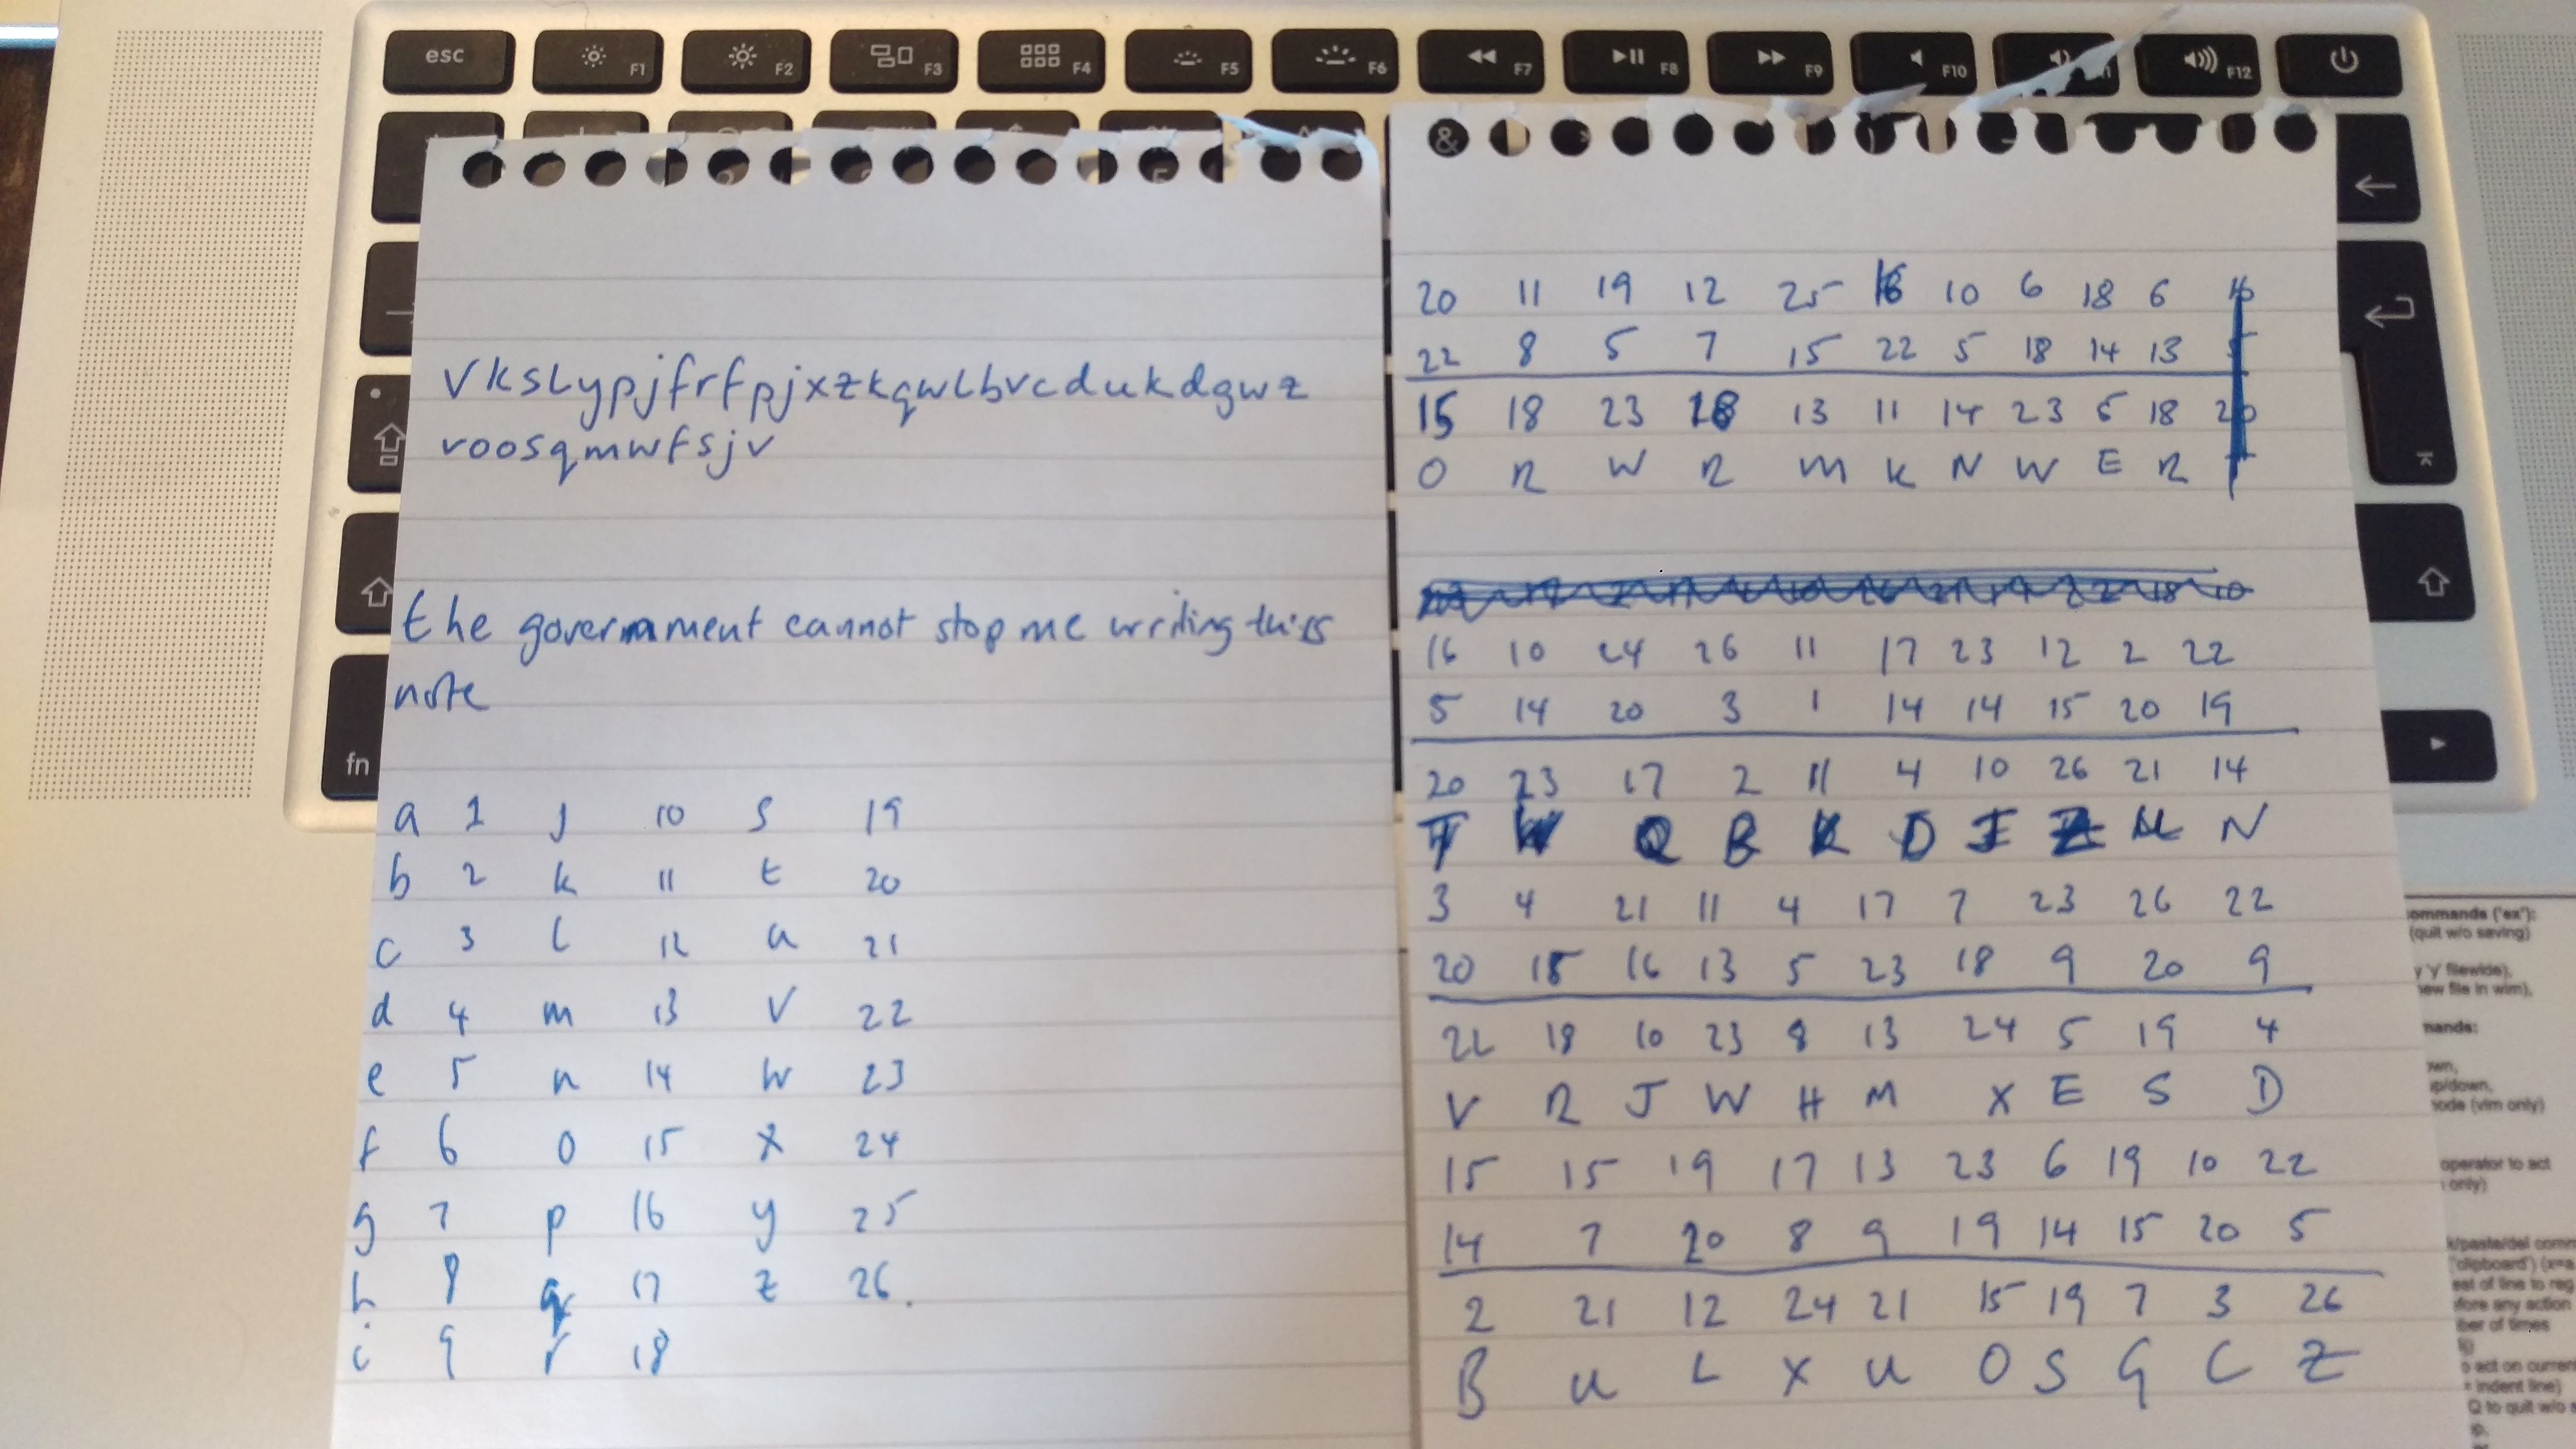 esc F1 F2 F3 F4 F5 F6 F7 F8 F9 F10 F12
&
fn
vkslypjfrfpjxzkqwlbvcdukdgwz
voosqmwfsjv
the government cannot stop me writing this
note
a 1 j 10 s 19
b 2 k 11 t 20
c 3 l 12 u 21
d 4 m 13 v 22
e 5 n 14 w 23
f 6 o 15 x 24
g 7 p 16 y 25
h 8 q 17 z 26.
i 9 r 18
20 11 19 12 25 16 10 6 18 6
22 8 5 7 15 22 5 18 14 13
15 18 23 18 13 11 14 23 5 18 20
O R W R M K N W E R
16 10 24 26 11 17 23 12 2 22
5 14 20 3 1 14 14 15 20 19
20 23 17 2 11 4 10 26 21 14
T W Q B K D J Z U N
3 4 21 11 4 17 7 23 26 22
20 15 16 13 5 23 18 9 20 9
22 18 10 23 8 13 24 5 19 4
V R J W H M X E S D
15 15 19 17 13 23 6 19 10 22
14 7 20 8 9 19 14 15 20 5
2 21 12 24 21 15 19 7 3 26
B U L X U O S G C Z
ommands ('ex'):
(quit w/o saving)
y 'y' filewide),
new file in vim),
mands:
up/down,
mode (vim only)
operator to act
only)
k/paste/del comm
('clipboard') (x=a
eat of line to reg
fore any action
ber of times
to act on current
= indent line)
Q to quit w/o s